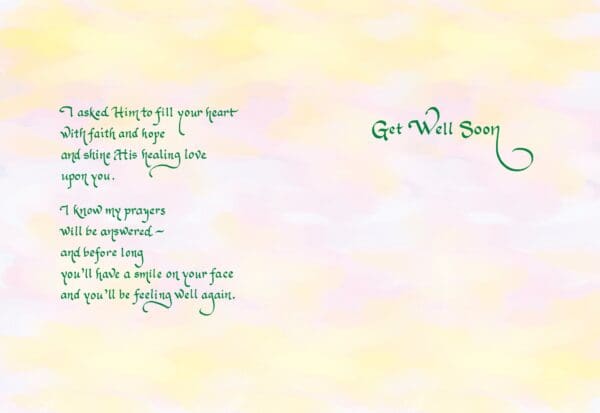 I asked Him to fill your heart
with faith and hope
and shine His healing love
upon you.
I know my prayers
will be answered ~
and before long
you'll have a smile on your face
and you'll be feeling well again.
Get Well Soon